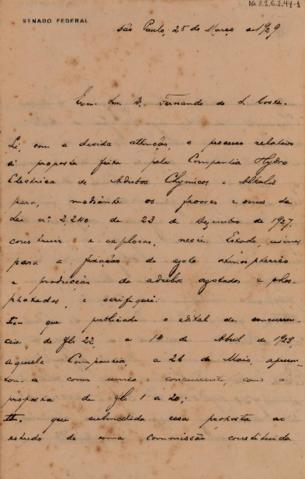 SENADO FEDERAL
São Paulo, 25 de Março de 1929
Exmo Snr D. Fernando de S. Costa.
Li, com a devida attenção, o processo relativo
á proposta feita pela Companhia Hydro
Electrica de Adubos Chymicos e Alkalis
para, mediante os favores e onus da
Lei nº 2.240, de 23 de Dezembro de 1927,
construir e explorar, neste Estado, usinas
para a fixação de azoto atmospherico
e producção de adubos azotados e phos-
phatados, e verifiquei:
que publicado o edital de concurren-
cia, de fls 22, a 19 de Abril de 1928
aquella Companhia, a 26 de Maio, apresen-
tou-a como unica concurrente, com a
proposta de fls 1 a 20;
que submettida essa proposta ao
estudo de uma commissão constituida